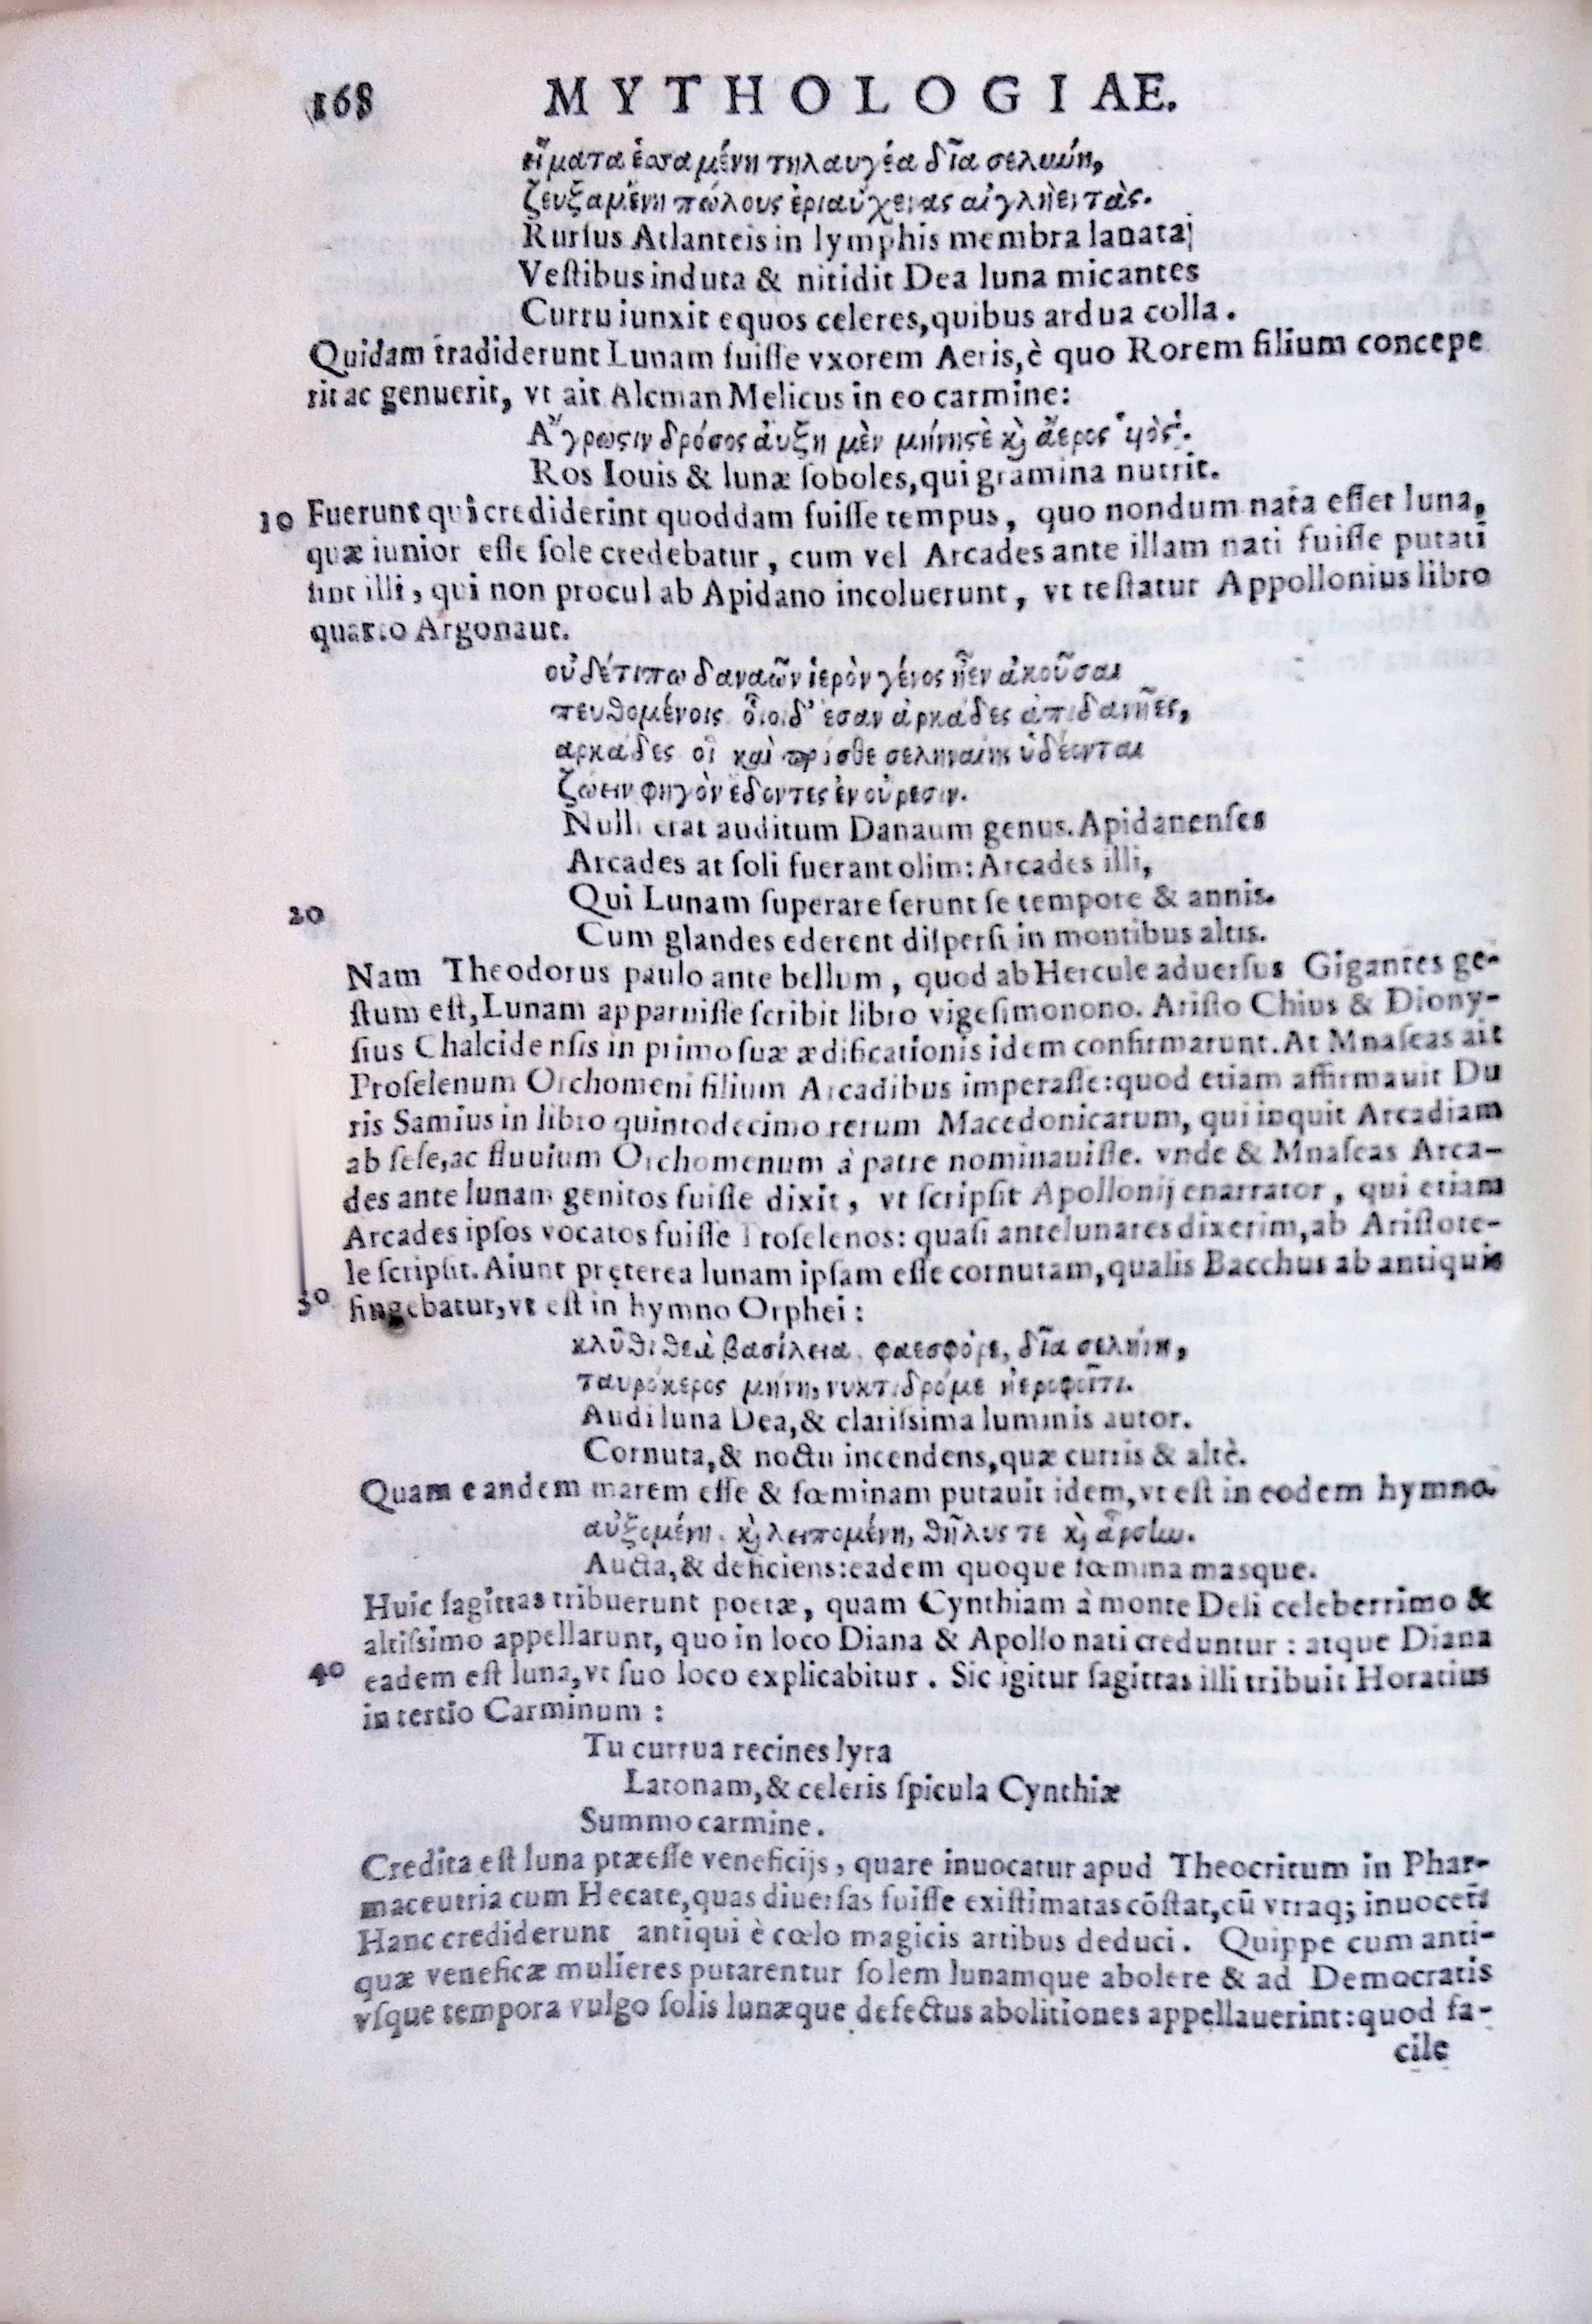 168 MYTHOLOGIAE.
εἵματα ἑσσαμένη τηλαυγέα δῖα σελήνη,
ζευξαμένη πώλους ἐριαύχενας αἰγλήεντὰς.
Rurſus Atlanteis in lymphis membra lauata;
Veſtibus induta & nitidit Dea luna micantes
Curru iunxit equos celeres, quibus ardua colla.
Quidam tradiderunt Lunam fuiſſe vxorem Aeris, è quo Rorem filium concepe
rit ac genuerit, vt ait Alcman Melicus in eo carmine:
Ἄγρωςιν δρόσος ἀυξη μὲν μήνης ὲ κỳ ἄερος
Ros Iouis & lunæ ſoboles, qui gramina nutrit.
10 Fuerunt qui crediderint quoddam fuiſſe tempus, quo nondum nata eſſet luna,
quæ iunior eſſe ſole credebatur, cum vel Arcades ante illam nati fuiſſe putati
ſint illi, qui non procul ab Apidano incoluerunt, vt teſtatur Appollonius libro
quarto Argonaut.
οὐδέτιπω δαναῶν ἱερὸν γένος ἦεν ἀκοῦσαι
πευθομένοις οἶοι δ' ἐσαν ἀρκάδες ἀπιδανῆες,
αρκάδες οἳ καὶ πρόσθε σεληναίης ὑδέονται
ζώειν φηγὸν ἐδοντες ἐν οὐρεσιν.
Nulli erat auditum Danaum genus. Apidanenſes
Arcades at ſoli fuerant olim: Arcades illi,
20 Qui Lunam ſuperare ferunt ſe tempore & annis.
Cum glandes ederent diſperſi in montibus altis.
Nam Theodorus paulo ante bellum, quod ab Hercule aduerſus Gigantes ge-
ſtum eſt, Lunam apparuiſſe ſcribit libro vigeſimonono. Ariſto Chius & Diony-
ſius Chalcidenſis in primo ſuæ ædificationis idem confirmarunt. At Mnaſeas ait
Proſelenum Orchomeni filium Arcadibus imperaſſe: quod etiam affirmauit Du
ris Samius in libro quintodecimo rerum Macedonicarum, qui inquit Arcadiam
ab ſeſe, ac fluuium Orchomenum à patre nominauiſſe. vnde & Mnaſeas Arca-
des ante lunam genitos fuiſſe dixit, vt ſcripſit Apollonij enarrator, qui etiam
Arcades ipſos vocatos fuiſſe Proſelenos: quaſi antelunares dixerim, ab Ariſtote-
le ſcripſit. Aiunt pręterea lunam ipſam eſſe cornutam, qualis Bacchus ab antiquis
30 fingebatur, vt eſt in hymno Orphei:
κλῦθι θεὰ βασίλεια, φαεσφόρε, δῖα σελήνη,
ταυρόκερος μήνη, νυκτιδρόμε ἠεροφοῖτι.
Audi luna Dea, & clariſsima luminis autor.
Cornuta, & noctu incendens, quæ curris & altè.
Quam eandem marem eſſe & fœminam putauit idem, vt eſt in eodem hymno.
αὐξομένη, κỳ λειπομένη, θῆλυς τε κỳ ἄρσλω.
Aucta, & deficiens: eadem quoque fœmina masque.
Huic ſagittas tribuerunt poetæ, quam Cynthiam à monte Deli celeberrimo &
altiſsimo appellarunt, quo in loco Diana & Apollo nati creduntur: atque Diana
40 eadem eſt luna, vt ſuo loco explicabitur. Sic igitur ſagittas illi tribuit Horatius
in tertio Carminum:
Tu currua recines lyra
Latonam, & celeris ſpicula Cynthiæ
Summo carmine.
Credita eſt luna præeſſe veneficijs, quare inuocatur apud Theocritum in Phar-
maceutria cum Hecate, quas diuerſas fuiſſe exiſtimatas cōſtat, cū vtraq; inuocet
Hanc crediderunt antiqui è cœlo magicis artibus deduci. Quippe cum anti-
quæ veneficæ mulieres putarentur ſolem lunamque abolere & ad Democratis
vſque tempora vulgo ſolis lunæque defectus abolitiones appellauerint: quod fa-
cile